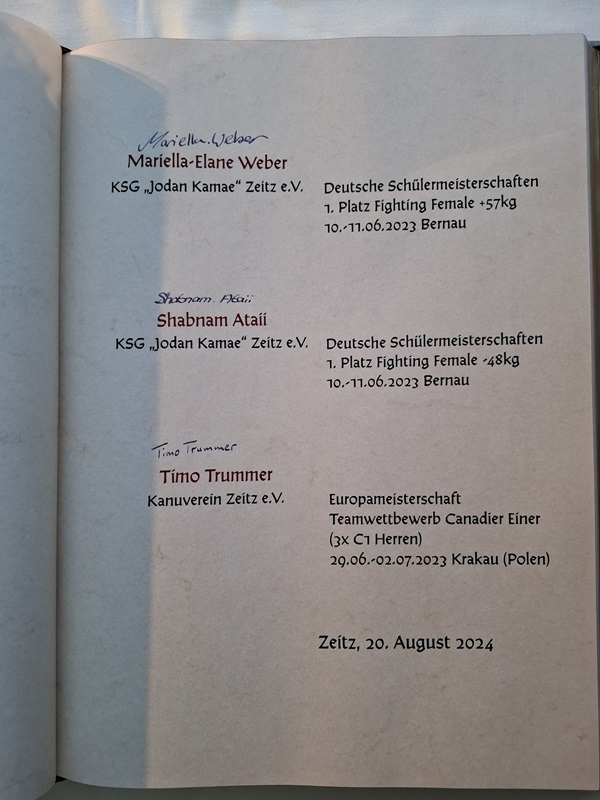 Mariella. Weber
Mariella-Elane Weber
KSG „Jodan Kamae“ Zeitz e.V.
Deutsche Schülermeisterschaften
1. Platz Fighting Female +57kg
10.-11.06.2023 Bernau
Shabnam. Ataii
Shabnam Ataii
KSG „Jodan Kamae“ Zeitz e.V.
Deutsche Schülermeisterschaften
1. Platz Fighting Female -48kg
10.-11.06.2023 Bernau
Timo Trummer
Timo Trummer
Kanuverein Zeitz e.V.
Europameisterschaft
Teamwettbewerb Canadier Einer
(3x C1 Herren)
29.06.-02.07.2023 Krakau (Polen)
Zeitz, 20. August 2024